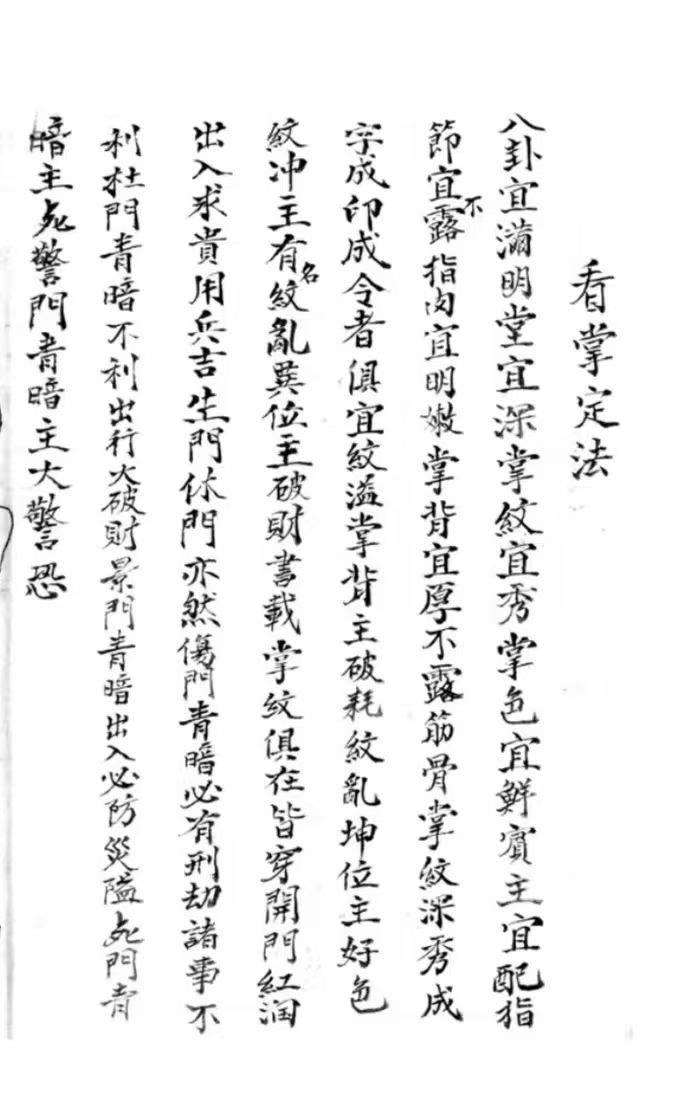 看掌定法
八卦宜滿明堂宜深掌紋宜秀掌色宜鮮賓主宜配指
節宜不露指肉宜明嫩掌背宜厚不露筋骨掌紋深秀成
字成印成令者俱宜紋溢掌背主破耗紋亂坤位主好色
紋冲主有名紋亂異位主破財書載掌紋俱在皆穿開門紅润
出入求貴用兵吉生門休門亦然傷門青暗必有刑劫諸事不
利杜門青暗不利出行大破財景門青暗出入必防災隘死門青
暗主死警門青暗主大警恐